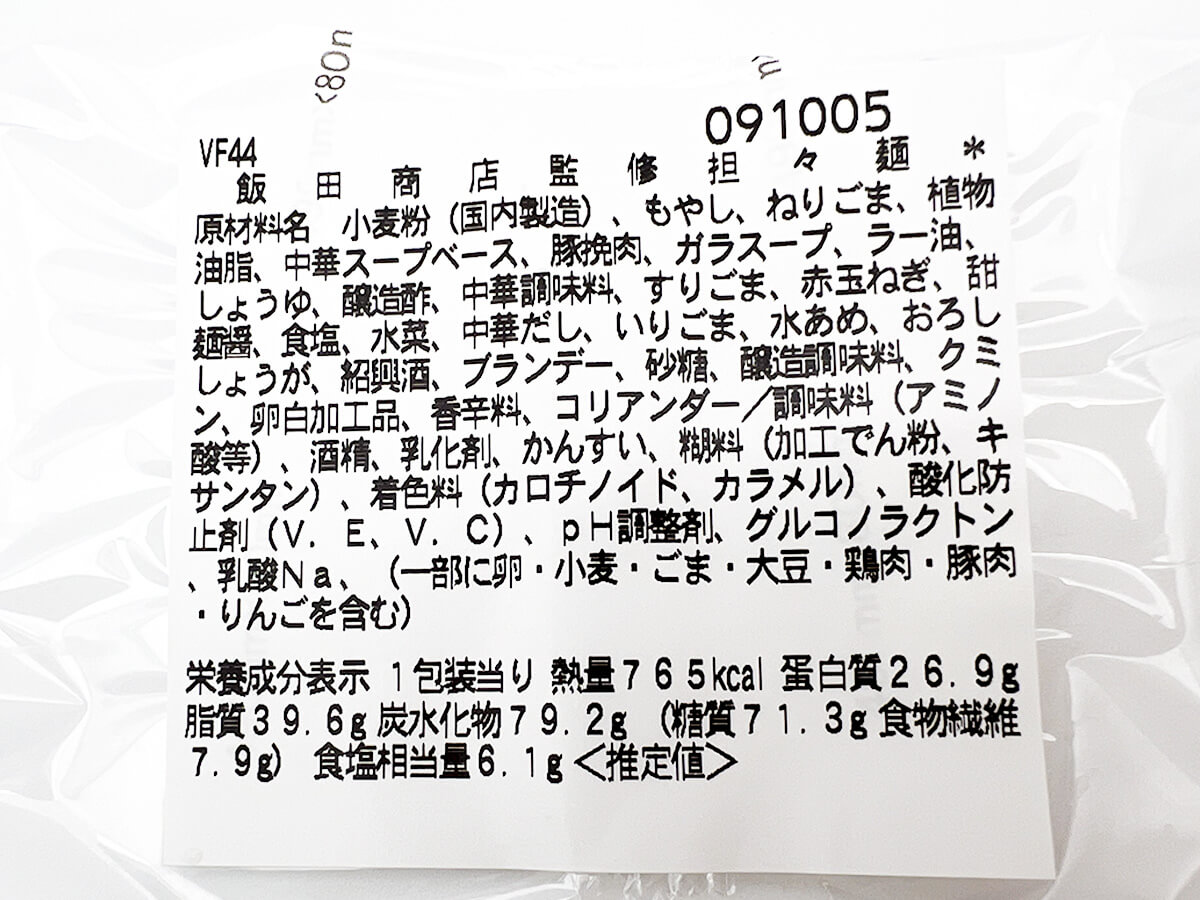 <80n
091005
VF44
飯田商店監修担々麺 *
原材料名 小麦粉（国内製造）、もやし、ねりごま、植物
油脂、中華スープベース、豚挽肉、ガラスープ、ラー油、
しょうゆ、醸造酢、中華調味料、すりごま、赤玉ねぎ、甜
麺醤、食塩、水菜、中華だし、いりごま、水あめ、おろし
しょうが、紹興酒、ブランデー、砂糖、醸造調味料、クミ
ン、卵白加工品、香辛料、コリアンダー／調味料（アミノ
酸等）、酒精、乳化剤、かんすい、糊料（加工でん粉、キ
サンタン）、着色料（カロチノイド、カラメル）、酸化防
止剤（Ｖ．Ｅ、Ｖ．Ｃ）、ｐＨ調整剤、グルコノラクトン
、乳酸Ｎａ、（一部に卵・小麦・ごま・大豆・鶏肉・豚肉
・りんごを含む）
栄養成分表示 １包装当り 熱量７６５kcal 蛋白質２６．９g
脂質３９．６g 炭水化物７９．２g （糖質７１．３g 食物繊維
７．９g） 食塩相当量６．１g ＜推定値＞